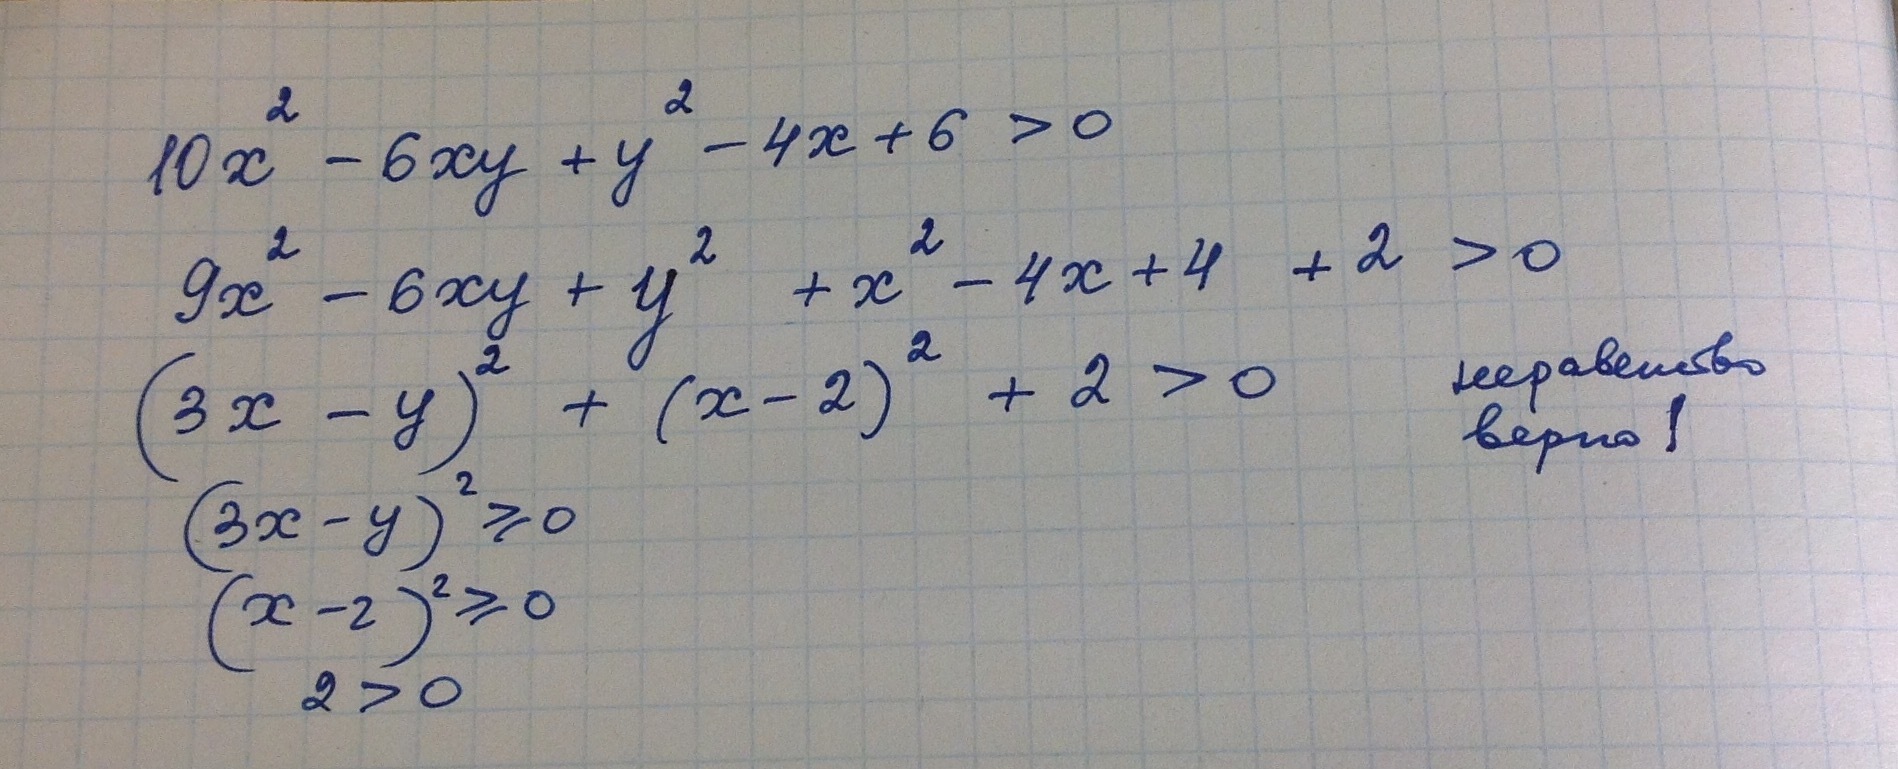 10x² - 6xy + y² - 4x + 6 > 0
9x² - 6xy + y² + x² - 4x + 4 + 2 > 0
(3x - y)² + (x - 2)² + 2 > 0 неравенство
верно!
(3x - y)² ≥ 0
(x - 2)² ≥ 0
2 > 0